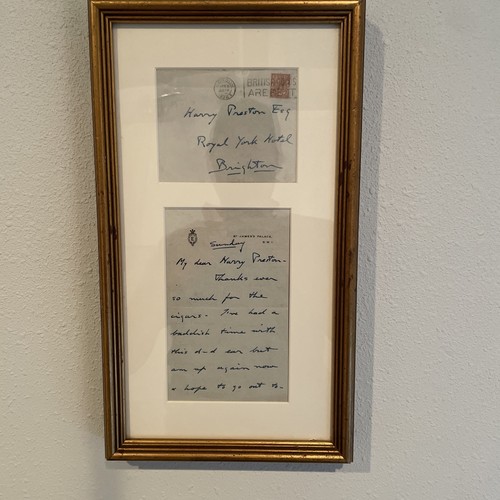 BRITISH
ARE BEST
Harry Preston Esq
Royal York Hotel
Brighton
ST. JAMES'S PALACE,
S.W.1.
Sunday
My dear Harry Preston -
Thanks ever
so much for the
cigars - I've had a
baddish time with
this d—d ear but
am up again now
& hope to go out to-